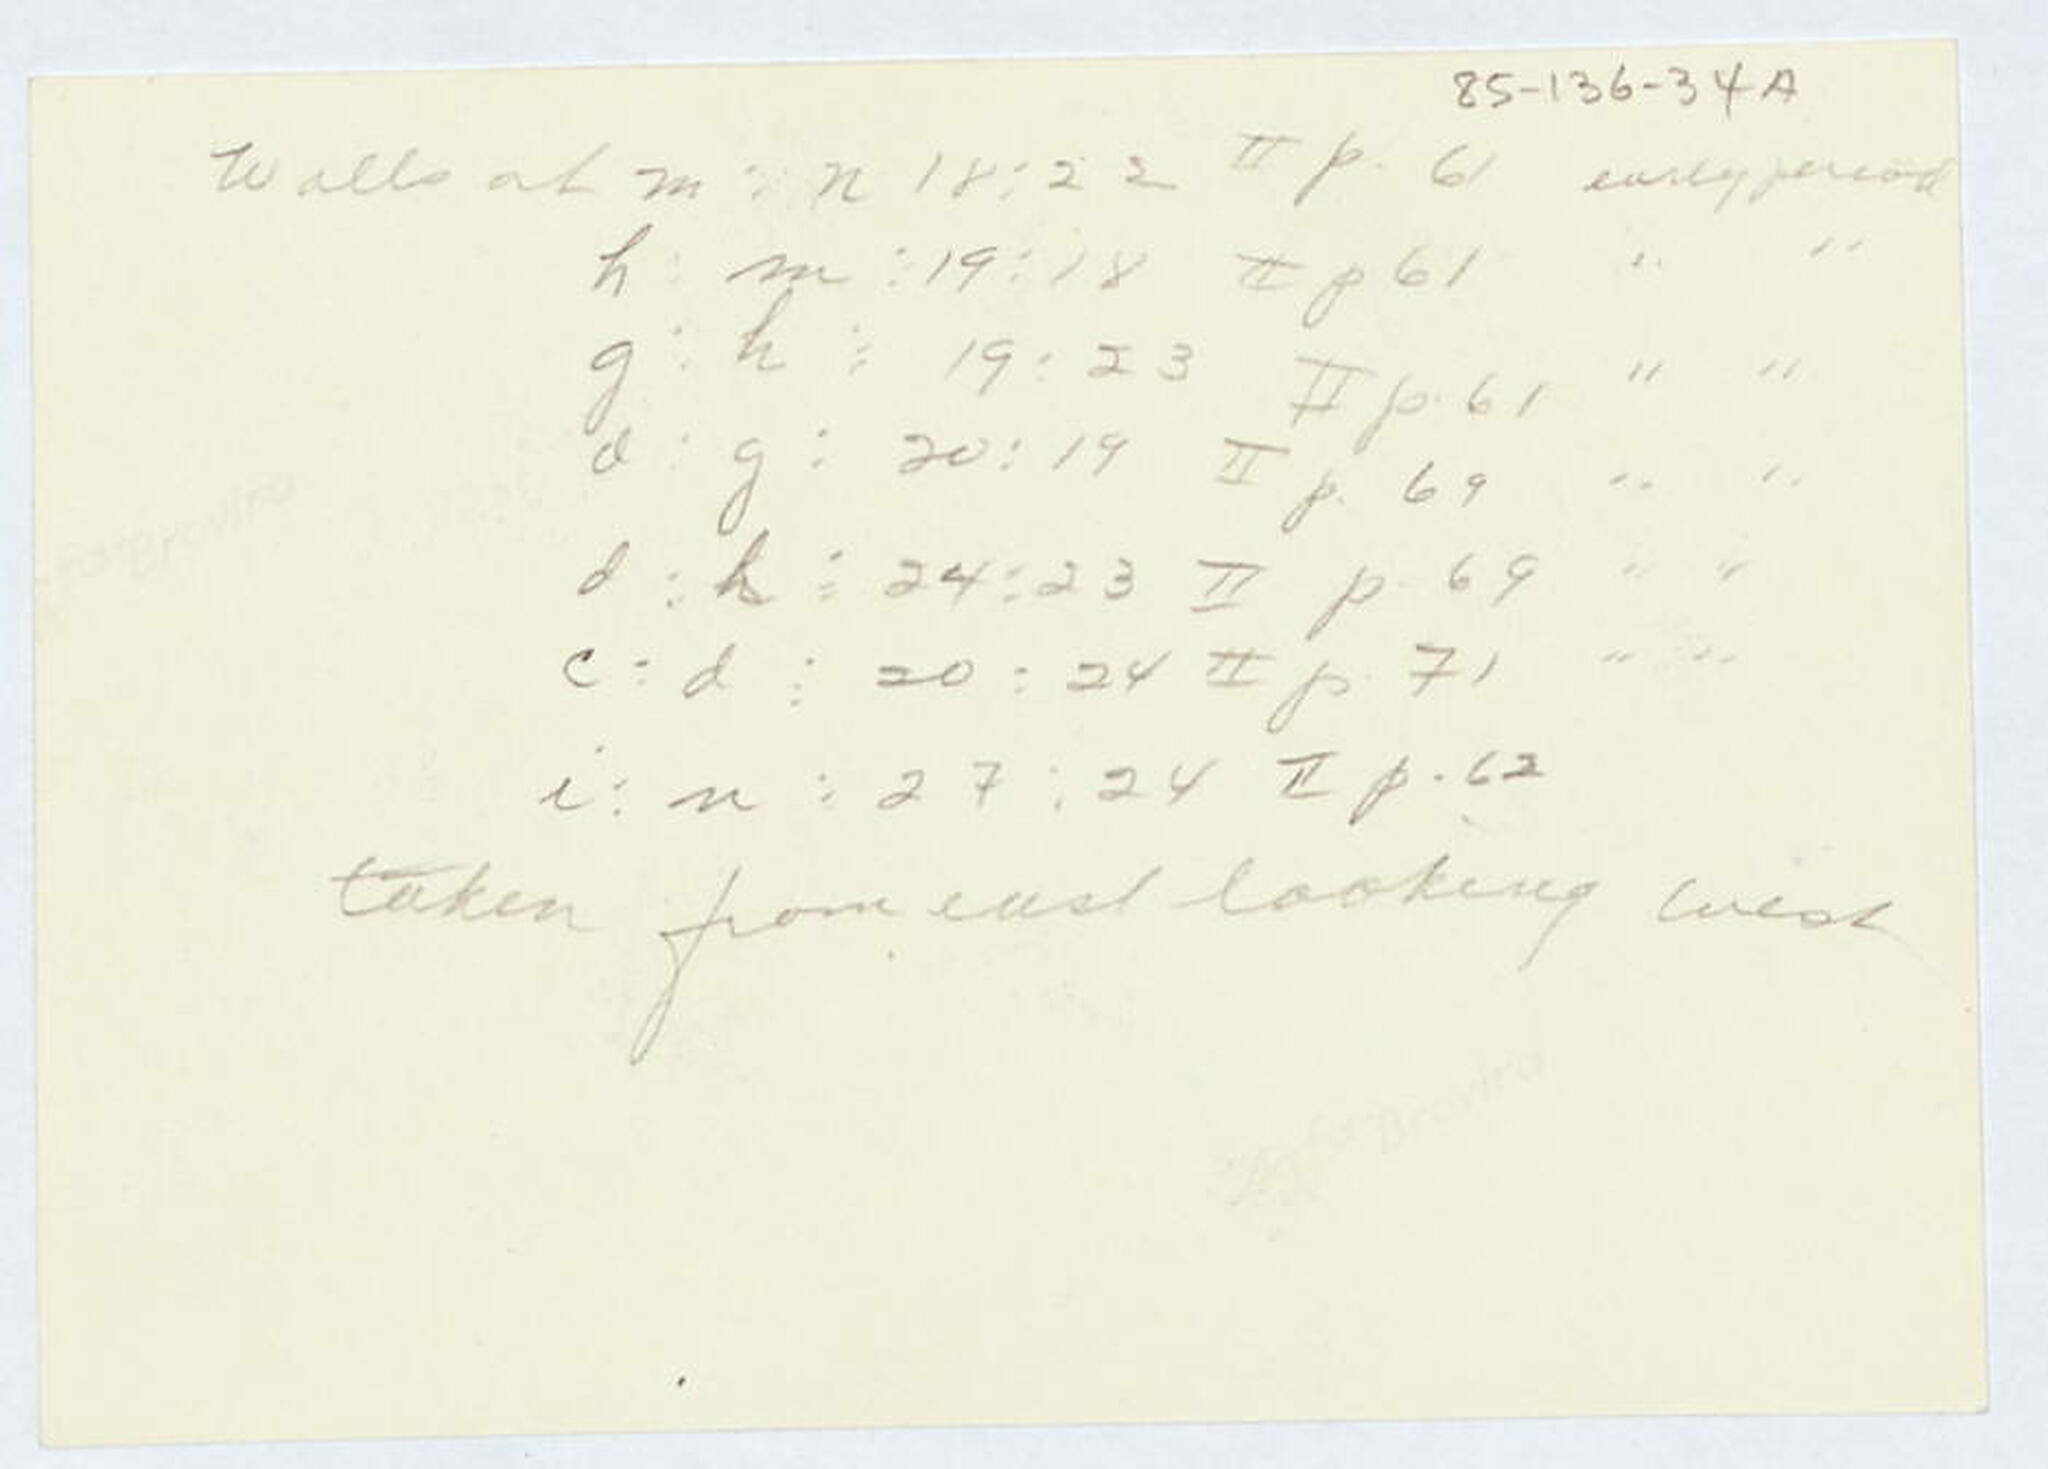 85-136-34A
Walls at m : n 18:22 II p. 61 early period
h : m : 19:18 II p 61 " "
g : h : 19:23 II p. 61 " "
d : g : 20:19 II p. 69 " "
d : h : 24:23 II p. 69 " "
c : d : 20:24 II p. 71 " "
i : n : 27:24 II p. 62
taken from east looking west
Agfa-Brovira